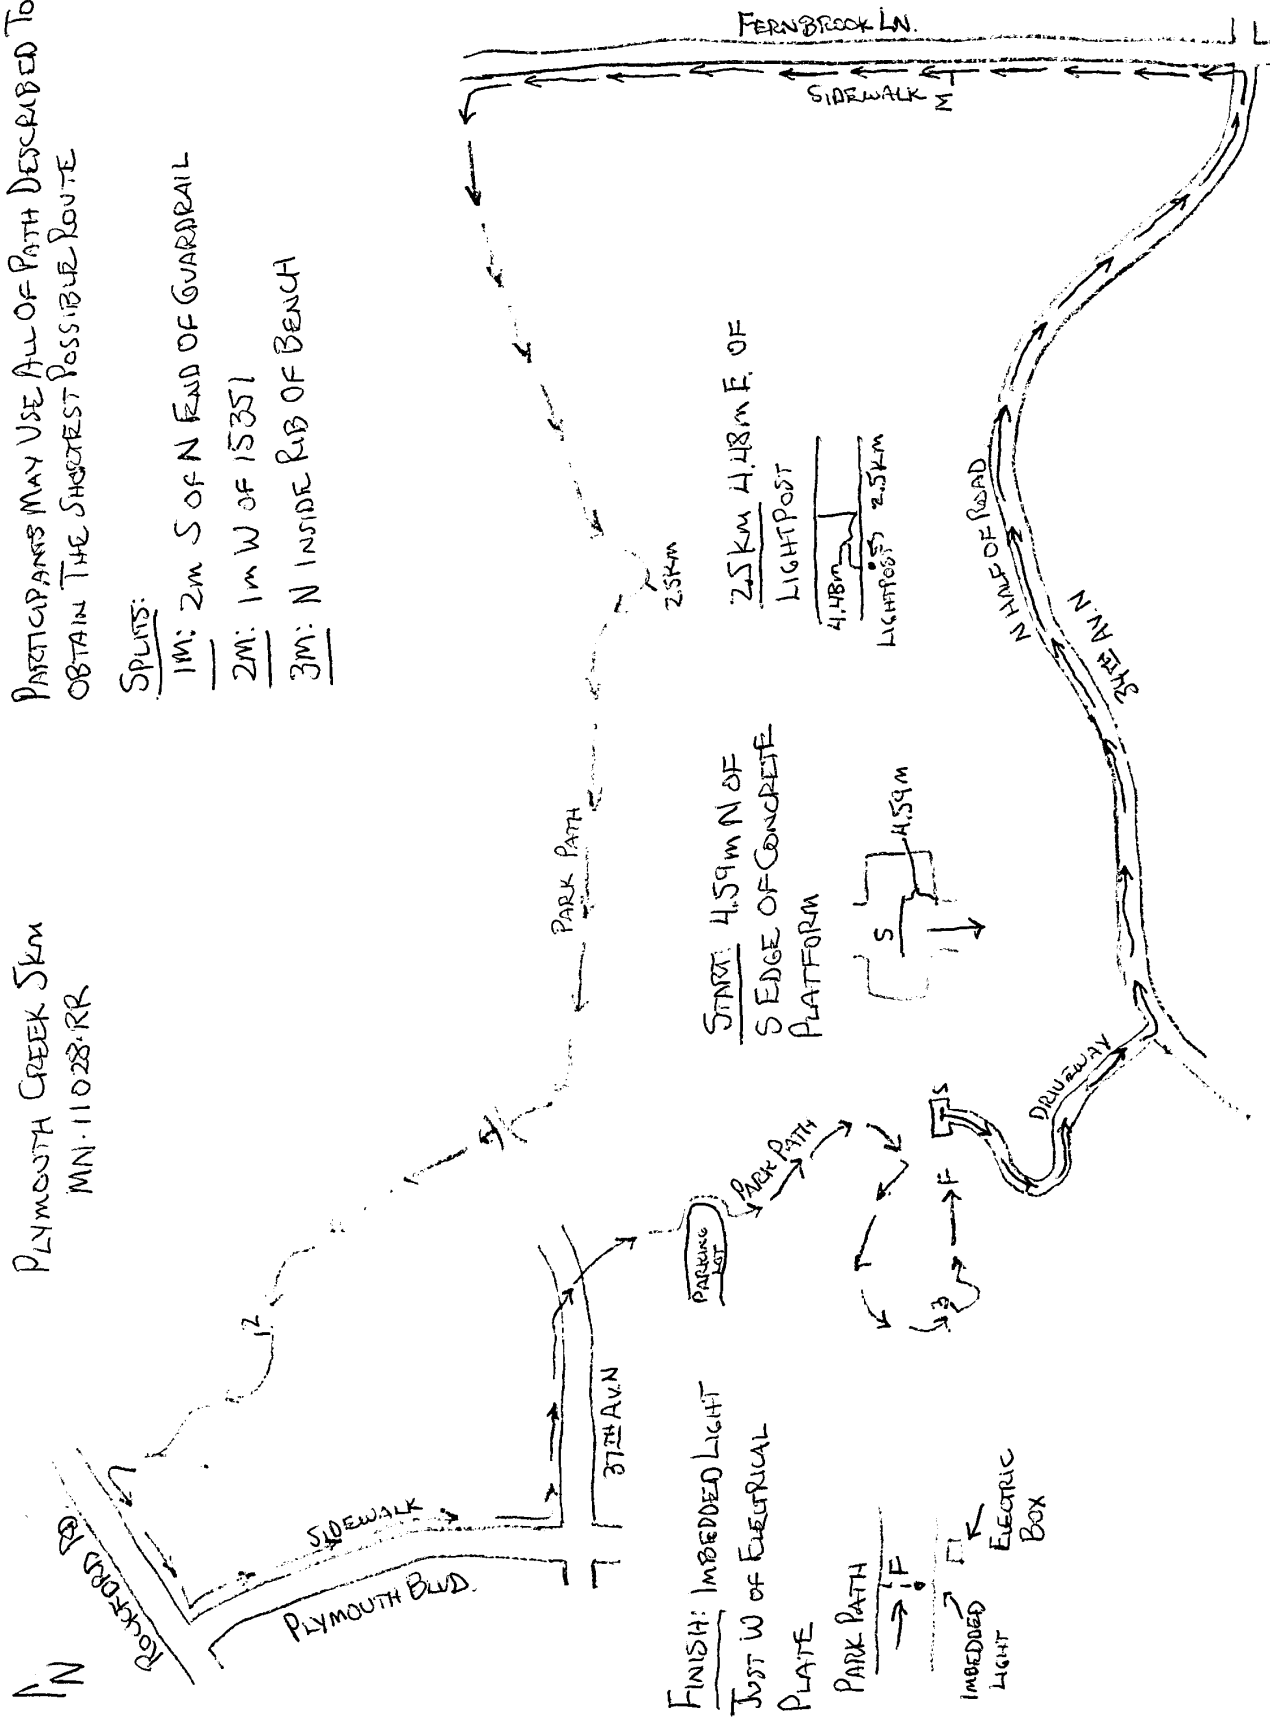 PLYMOUTH CREEK 5KM
MN·11028·RR
PARTICIPANTS MAY USE ALL OF PATH DESCRIBED TO
OBTAIN THE SHORTEST POSSIBLE ROUTE
SPLITS:
1M: 2m S OF N END OF GUARDRAIL
2M: 1m W OF 15351
3M: N INSIDE RIB OF BENCH
N
ROCKFORD RD
SIDEWALK
PLYMOUTH BLVD.
37TH AV.N
2
PARK PATH
2.5KM
FERNBROOK LN.
SIDEWALK
M
PARKING
LOT
PARK PATH
3
F
S
DRIVEWAY
N HALF OF ROAD
34TH AV. N
START: 4.59m N OF
S EDGE OF CONCRETE
PLATFORM
S
4.59m
2.5KM 4.48m E. OF
LIGHTPOST
4.48m
LIGHTPOST
2.5KM
FINISH: IMBEDDED LIGHT
JUST W OF ELECTRICAL
PLATE
PARK PATH
F
IMBEDDED
LIGHT
ELECTRIC
BOX